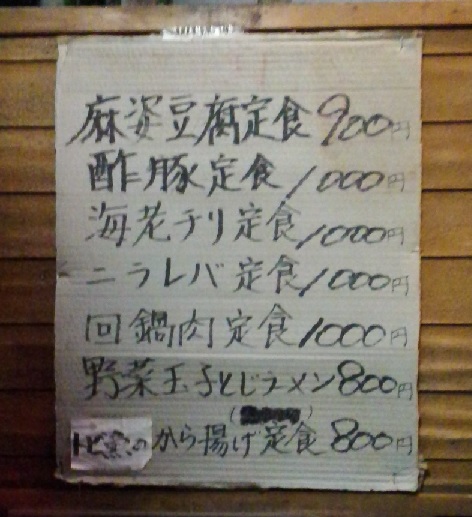 麻婆豆腐定食 900円
酢豚定食 1000円
海老チリ定食 1000円
ニラレバ定食 1000円
回鍋肉定食 1000円
野菜玉子とじラーメン 800円
から揚げ定食 800円